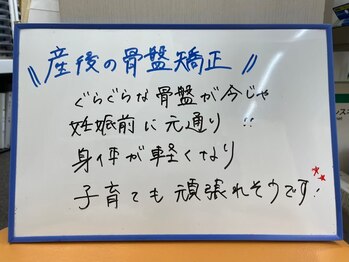 産後の骨盤矯正
ぐらぐらな骨盤が今じゃ
妊娠前に元通り!!
身体が軽くなり
子育ても頑張れそうです!